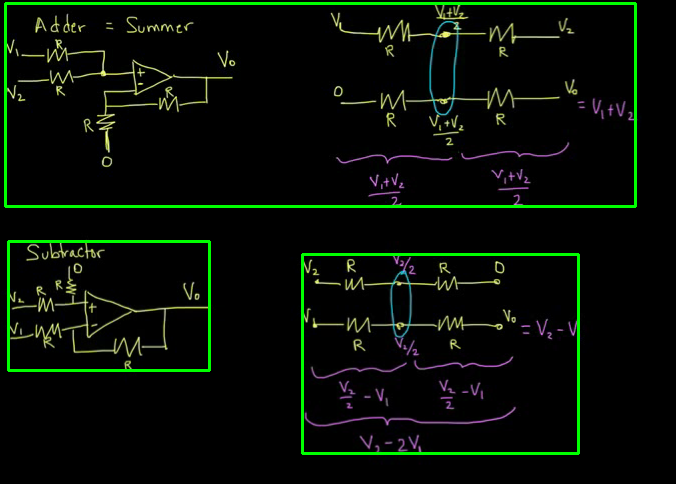 Adder = Summer
V₁ R
V₂ R
+ -
R
V₀
R
0
V₁ R (V₁+V₂)/2 R V₂
0 R (V₁+V₂)/2 R V₀ = V₁+V₂
(V₁+V₂)/2 (V₁+V₂)/2
Subtractor
0
V₂ R R
V₁ R
+ -
V₀
R
V₂ R V₂/2 R 0
V R V₂/2 R V₀ = V₂ - V
V₂/2 - V₁ V₂/2 - V₁
V₂ - 2V₁